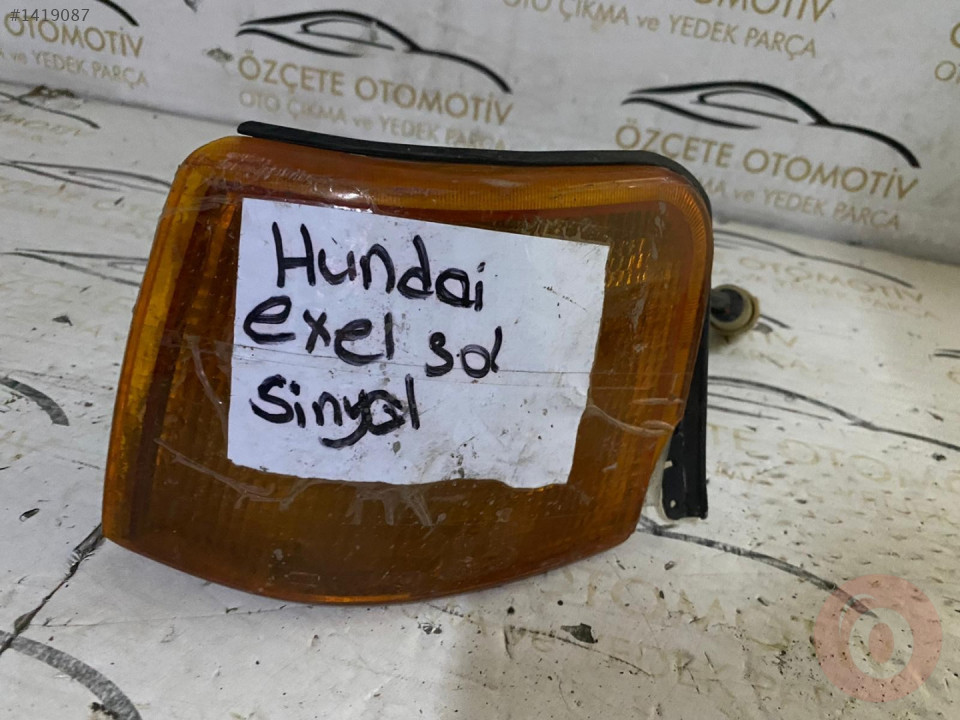 #1419087
OTO ÇIKMA ve YEDEK PARÇA
OTOMOTİV
ve YEDEK PARÇA
ÖZÇETE OTOMOTİV
OTO ÇIKMA ve YEDEK PARÇA
ÖZÇETE OTOMOTİV
ve YEDEK PARÇA
Hundai
exel sol
Sinyal